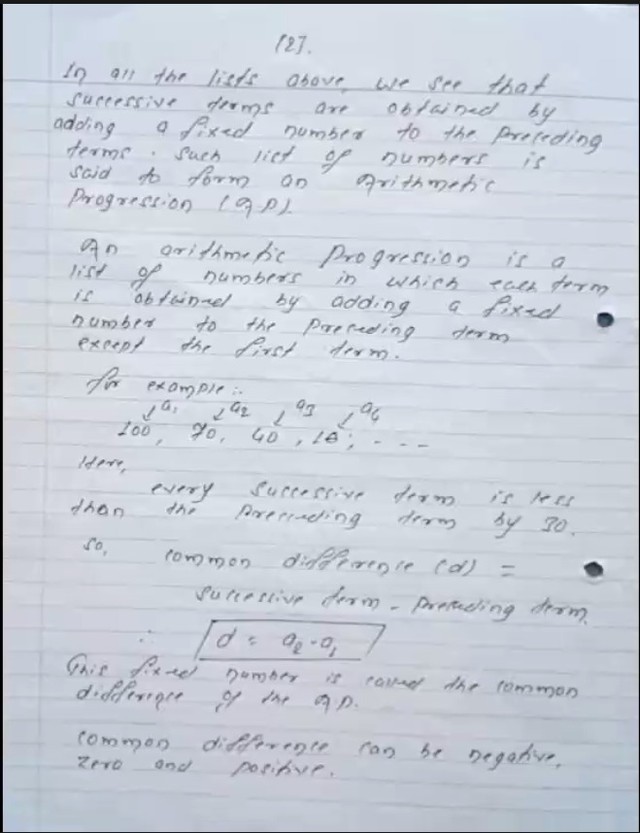 [2].
In all the lists above, we see that
successive terms are obtained by
adding a fixed number to the preceding
terms. Such list of numbers is
said to form an Arithmetic
Progression (AP).
An arithmetic progression is a
list of numbers in which each term
is obtained by adding a fixed
number to the preceding term
except the first term.
for example:
↓a1 ↓a2 ↓a3 ↓a4
100, 70, 40, 10, - - -
Here,
every successive term is less
than the preceeding term by 30.
So, common difference (d) =
successive term - preceding term.
∴ d = a2 - a1
This fixed number is called the common
difference of the AP.
Common difference can be negative,
zero and positive.